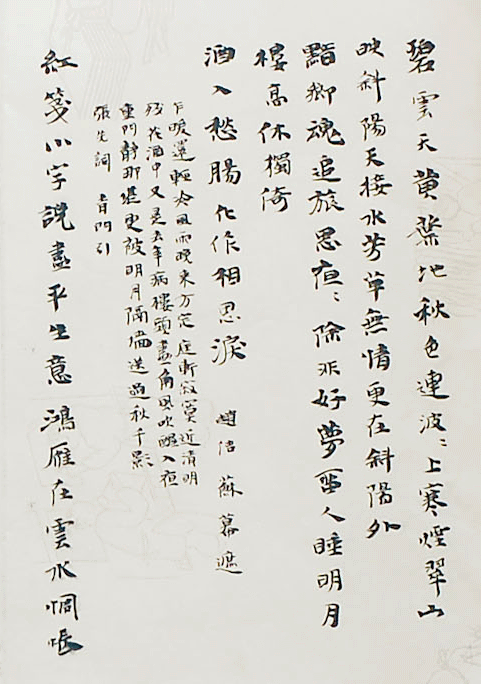 碧雲天黃葉地秋色連波〻上寒煙翠山
映斜陽天接水芳草無情更在斜陽外
黯鄉魂追旅思夜〻除非好夢畱人睡明月
樓高休獨倚
酒入愁腸化作相思淚 趙佶 蘇幕遮
乍暖還輕冷風雨晚來方定庭軒寂寞近清明
殘花酒中又是去年病樓頭畫角風吹醒入夜
重門靜那堪更被明月隔墻送過秋千影
張先詞 青門引
紅箋小字說盡平生意鴻雁在雲水惆悵